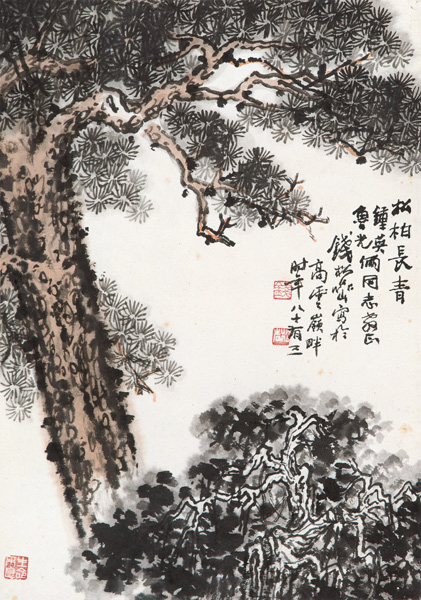 松柏長青
鍾英
魯光 兩同志教正
錢松喦写於
高雲嶺畔
時年八十有三